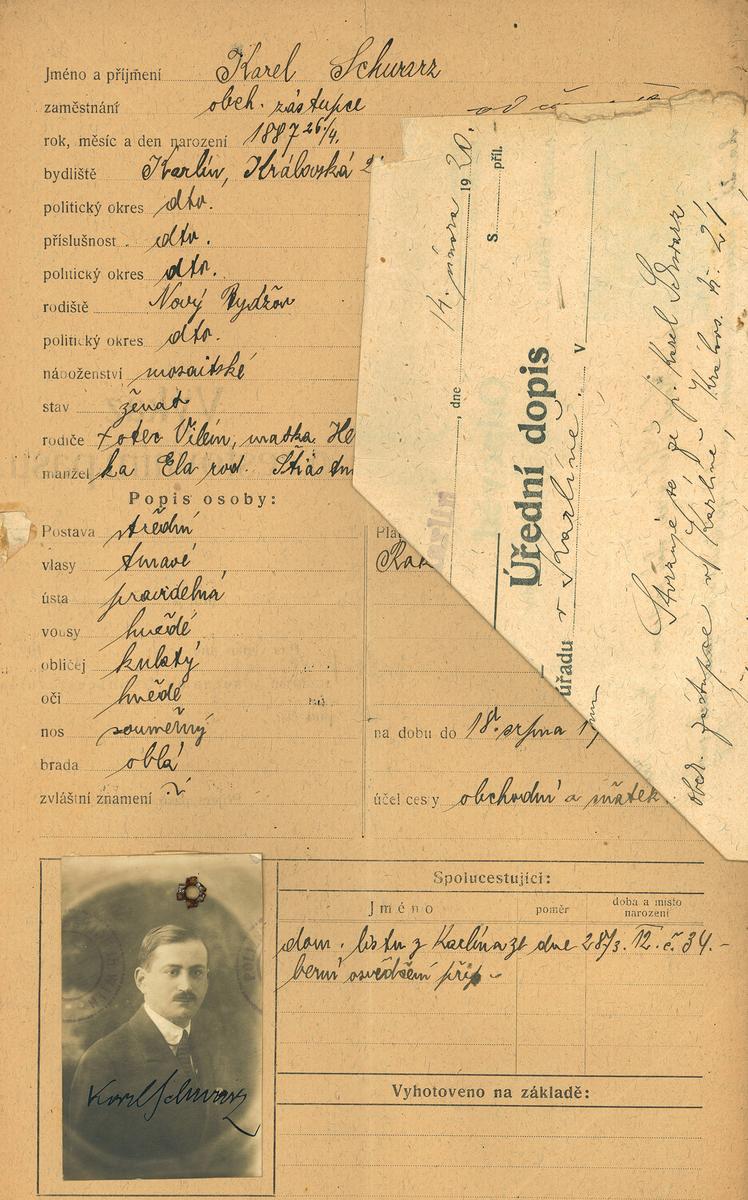 Jméno a příjmení Karel Schwarz
zaměstnání obch. zástupce
rok, měsíc a den narození 1887 26/4.
bydliště Karlín, Královská 2
politický okres dto.
příslušnost dto.
politický okres dto.
rodiště Nový Bydžov
politický okres dto.
náboženství mosaitské
stav ženat
rodiče otec Vilém, matka He
manžel ka Ela rod. Šťastn
Popis osoby:
Postava střední
vlasy tmavé
ústa pravidelná
vousy hnědé
obličej kulatý
oči hnědé
nos souměrný
brada oblá
zvláštní znamení
Plat
Rak
na dobu do 18. srpna 1
účel cesty obchodní a
14. února 1920.
, dne
S příl.
Úřední dopis
úřadu v Karlíně. v
Stvrzuje se že p. Karel Schwarz
obch. zástupce v Karlíně, Královs. tř. 21
Spolucestující:
Jméno
poměr
doba a místo
narození
dom. listu z Karlína ze dne 28/3. 12. č. 34.-
berní osvědčení přip.
Karel Schwarz
Vyhotoveno na základě: